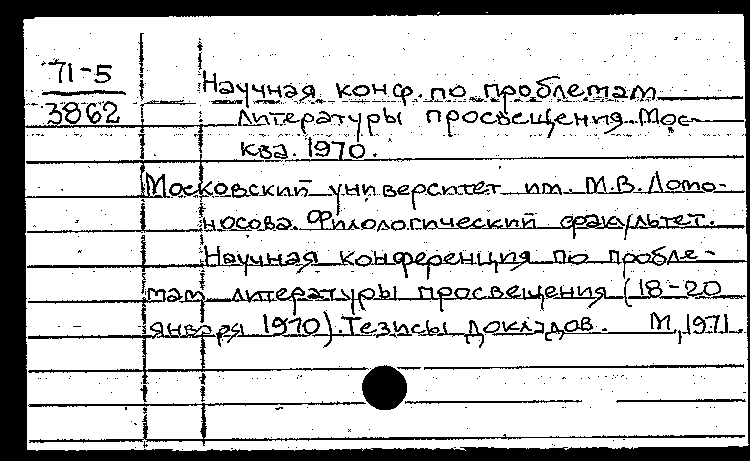 71-5
3862
Научная конф. по проблемам
литературы просвещения. Мос-
ква. 1970.
Московский университет им. М.В. Ломо-
носова. Филологический факультет.
Научная конференция по пробле-
мам литературы просвещения (18-20
января 1970). Тезисы докладов. М, 1971.